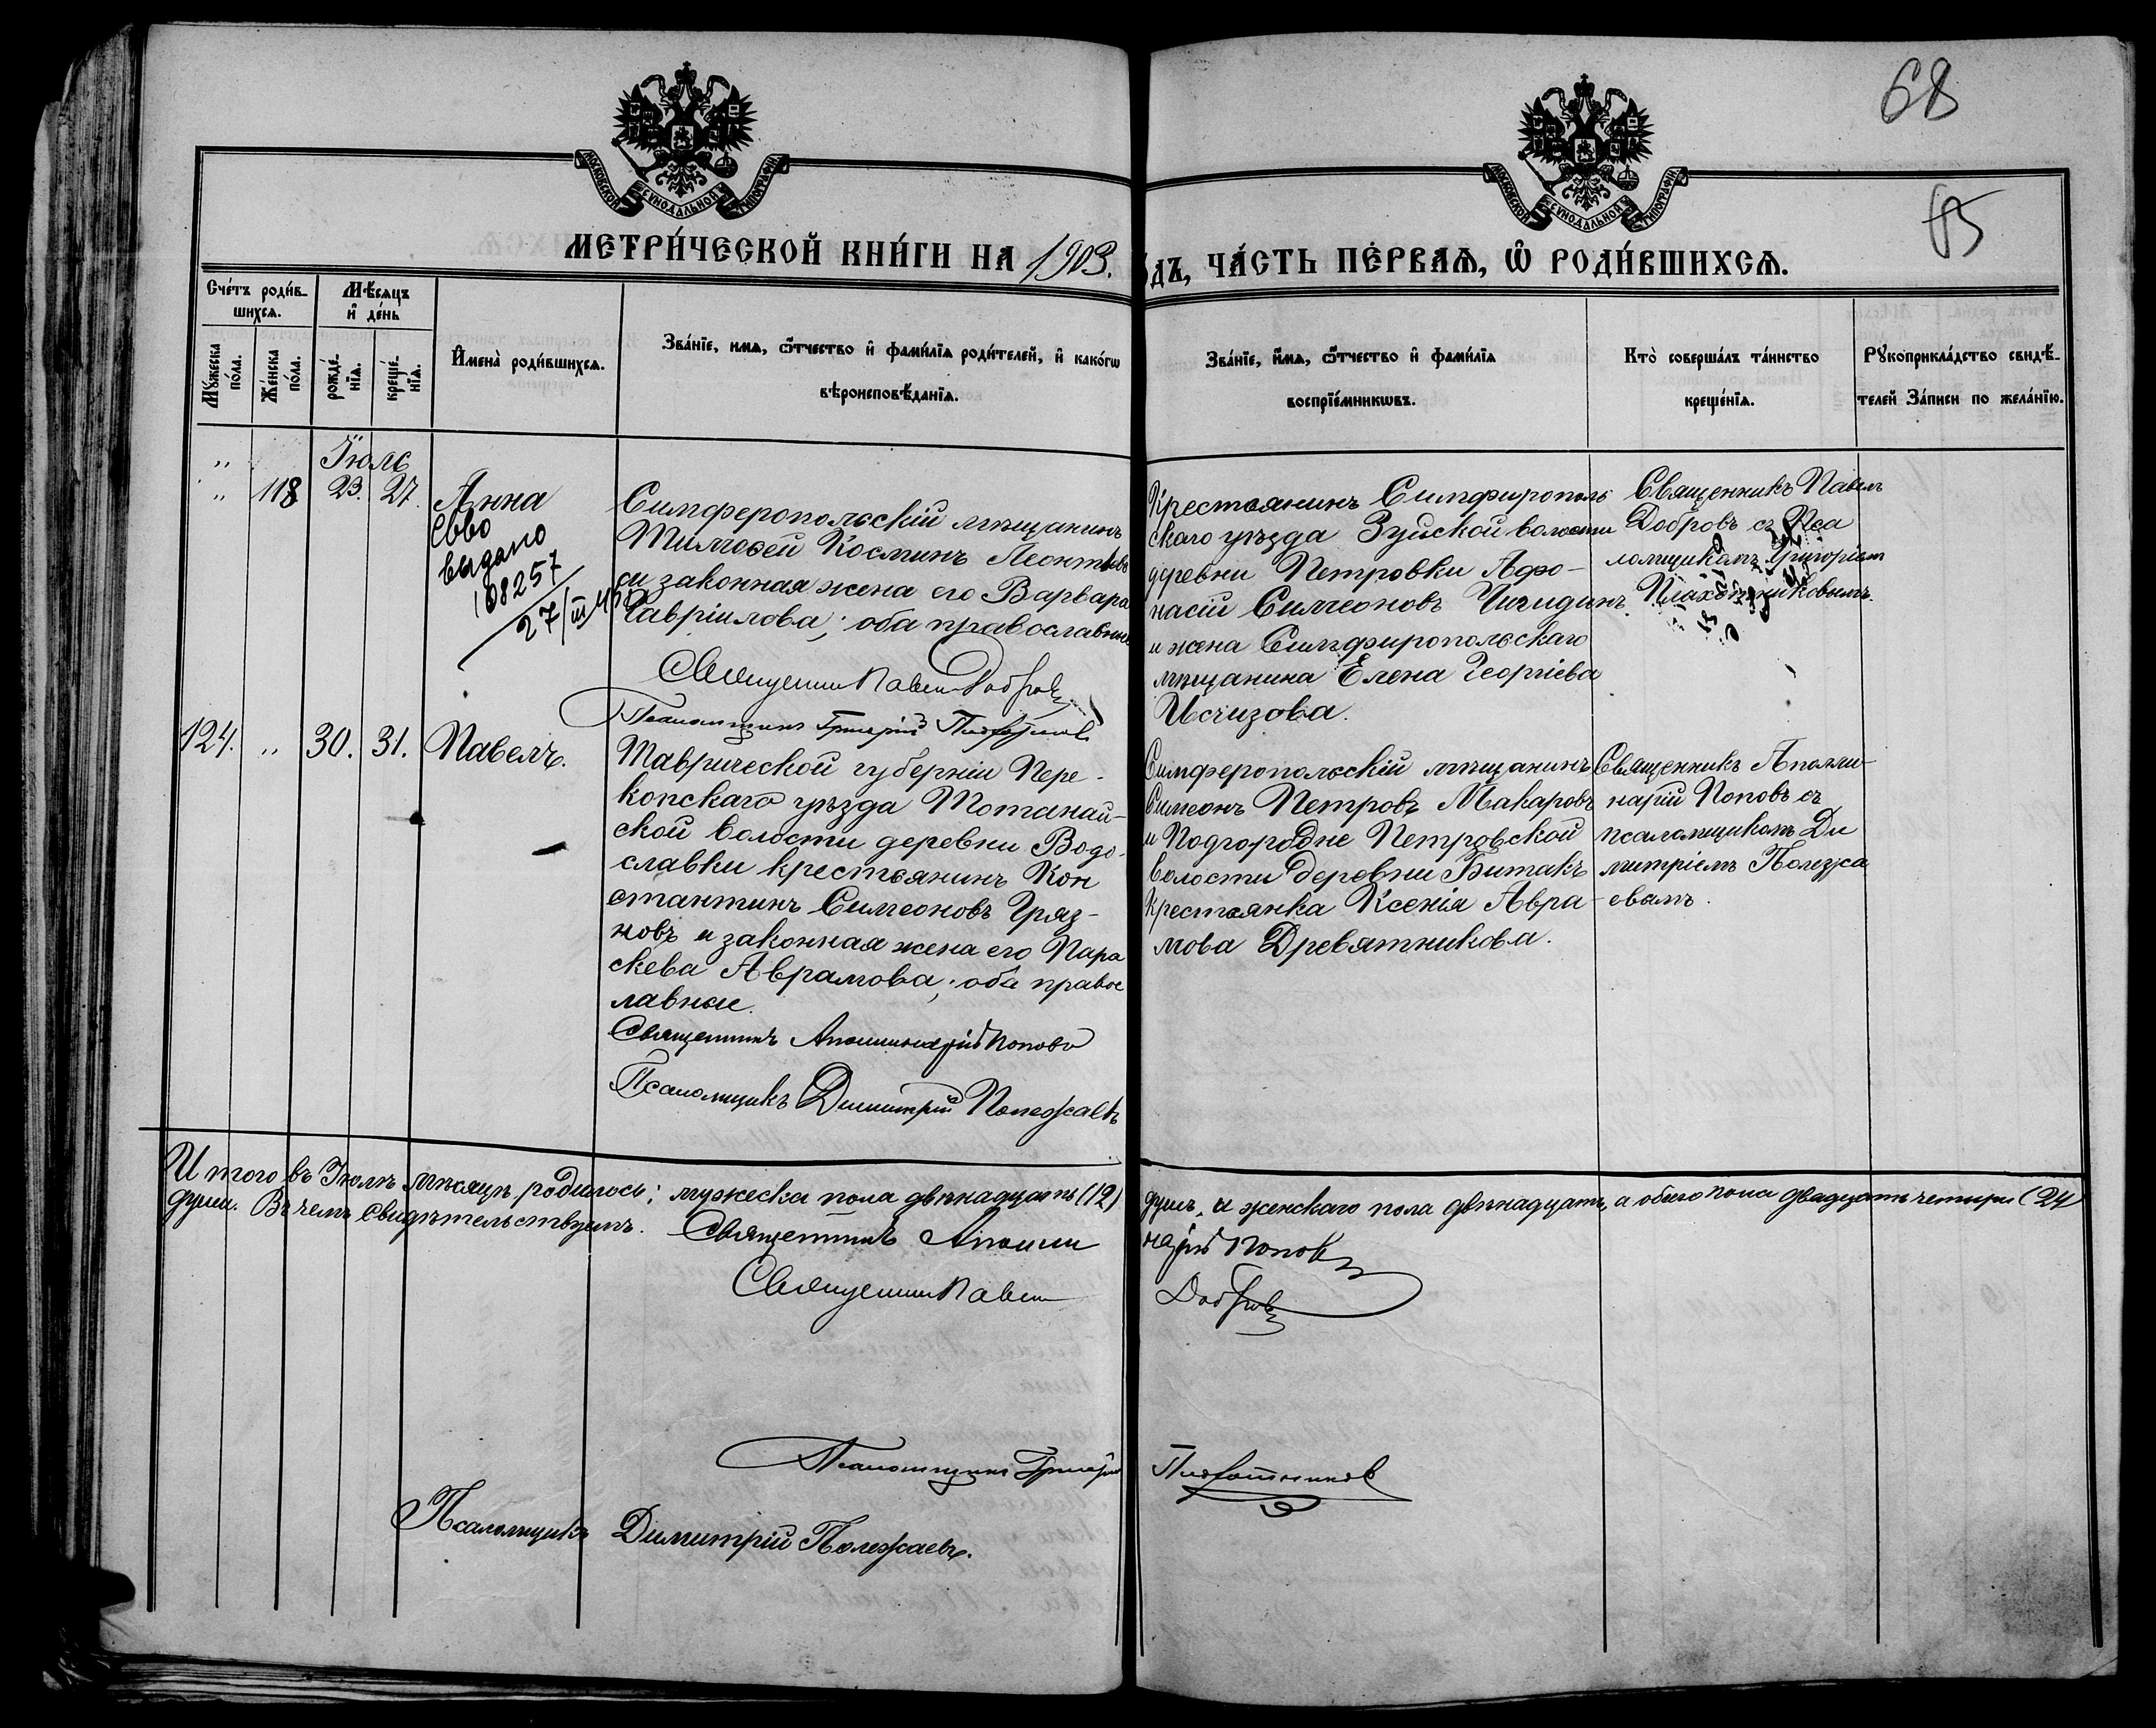 68
65
МОСКОВСКОЙ СѴНОДАЛЬНОЙ ТИПОГРАФІИ
МОСКОВСКОЙ СѴНОДАЛЬНОЙ ТИПОГРАФІИ
МЕТРИ́ЧЕСКОЙ КНИ́ГИ НА 1903.
ДЪ, ЧА́СТЬ ПЕ́РВАѦ, Ѡ РОДИ́ВШИХСѦ.
Сче́тъ роди́в-
шихсѧ.
Мꙋ́жеска
по́ла.
Же́нска
по́ла.
Мѣ́сѧцъ
и҆ де́нь
рожде́-
нїѧ.
креще́-
нїѧ.
И҆мена̀ роди́вшихсѧ.
Зва́нїе, имѧ, ѻ҆́тчество и҆ фами́лїѧ роди́телей, и҆ како́гѡ
вѣроисповѣ́данїѧ.
Зва́нїе, и҆́мѧ, ѻ҆́тчество и҆ фами́лїѧ
воспрїе́мникѡвъ.
Кто̀ соверша́лъ та́инство
креще́нїѧ.
Рꙋкоприкла́дство свидѣ́-
телей За́писи по жела́нїю.
Іюль
„ 118 23. 27. Анна
Сво
выдано
108257
27/III
Симферопольскій мѣщанинъ
Тимоѳей Косминъ Леонтьевъ
и законная жена его Варвара
Гавріилова; оба православные
Священник Павел Добровъ
Псаломщикъ Григорій Плохотников
Крестьянинъ Симфирополь
скаго уѣзда Зуйской волости
деревни Петровки Афо-
насій Симеоновъ Чигидинъ
и жена Симфиропольскаго
мѣщанина Елена Георгіева
Исчизова.
Священникъ Павелъ
Добровъ съ Пса
ломщикомъ Григоріемъ
Плахотниковымъ.
124. „ 30. 31. Павелъ.
Таврической губерніи Пере-
копскаго уѣзда Тотанай-
ской волости деревни Водо-
славки крестьянинъ Кон
стантинъ Симеоновъ Гряз-
новъ и законная жена его Пара
скева Аврамова; оба правос
лавные.
Священникъ Аполлинарій Поповъ
Псаломщикъ Димитрій Полежаевъ
Симферопольскій мѣщанинъ
Симеонъ Петровъ Макаровъ
и Подгородне Петровской
волости деревни Битакъ
крестьянка Ксенія Авра-
мова Древятникова.
Священникъ Аполли-
нарій Поповъ съ
псаломщикомъ Ди
митріемъ Полежа
евымъ.
Итого въ Іюлѣ мѣсяцѣ родилось: мужеска пола двѣнадцать (12) душъ, и женскаго пола двѣнадцать, а обоего пола двадцать четыри (24)
души. Въ чемъ свидѣтельствуемъ. Священникъ Аполлинарій Поповъ
Священник Павел Добровъ
Псаломщикъ Григорій Плохотников
Псаломщикъ Димитрій Полежаевъ.